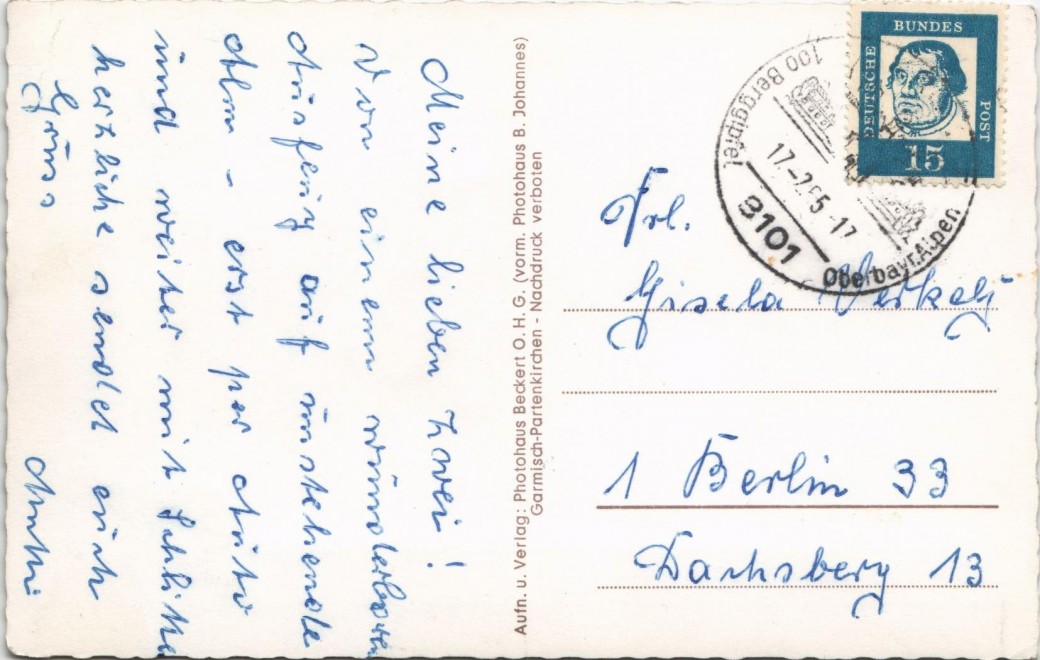 Meine lieben Zwei!
Von einem wunderbaren
Ausflug auf umstehende
Alm - erst per Auto
und weiter mit Schlitten
herzliche sendet euch
Grüsse
Aufn. u. Verlag: Photohaus Beckert O. H. G. (vorm. Photohaus B. Johannes)
Garmisch-Partenkirchen - Nachdruck verboten
DEUTSCHE
BUNDES
POST
15
100 Berggipfel
17.-2.65-17
8101
Oberbayr.Alpen
Frl.
Gisela
1 Berlin 33
Dachsberg 13